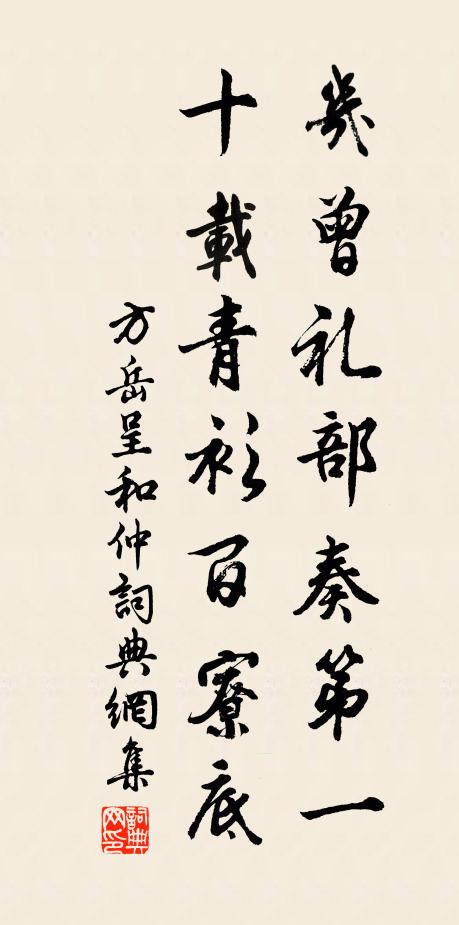 幾曾礼部奏第一
十載青衫百寮底
方岳呈和仲詞典網集
詞典網印